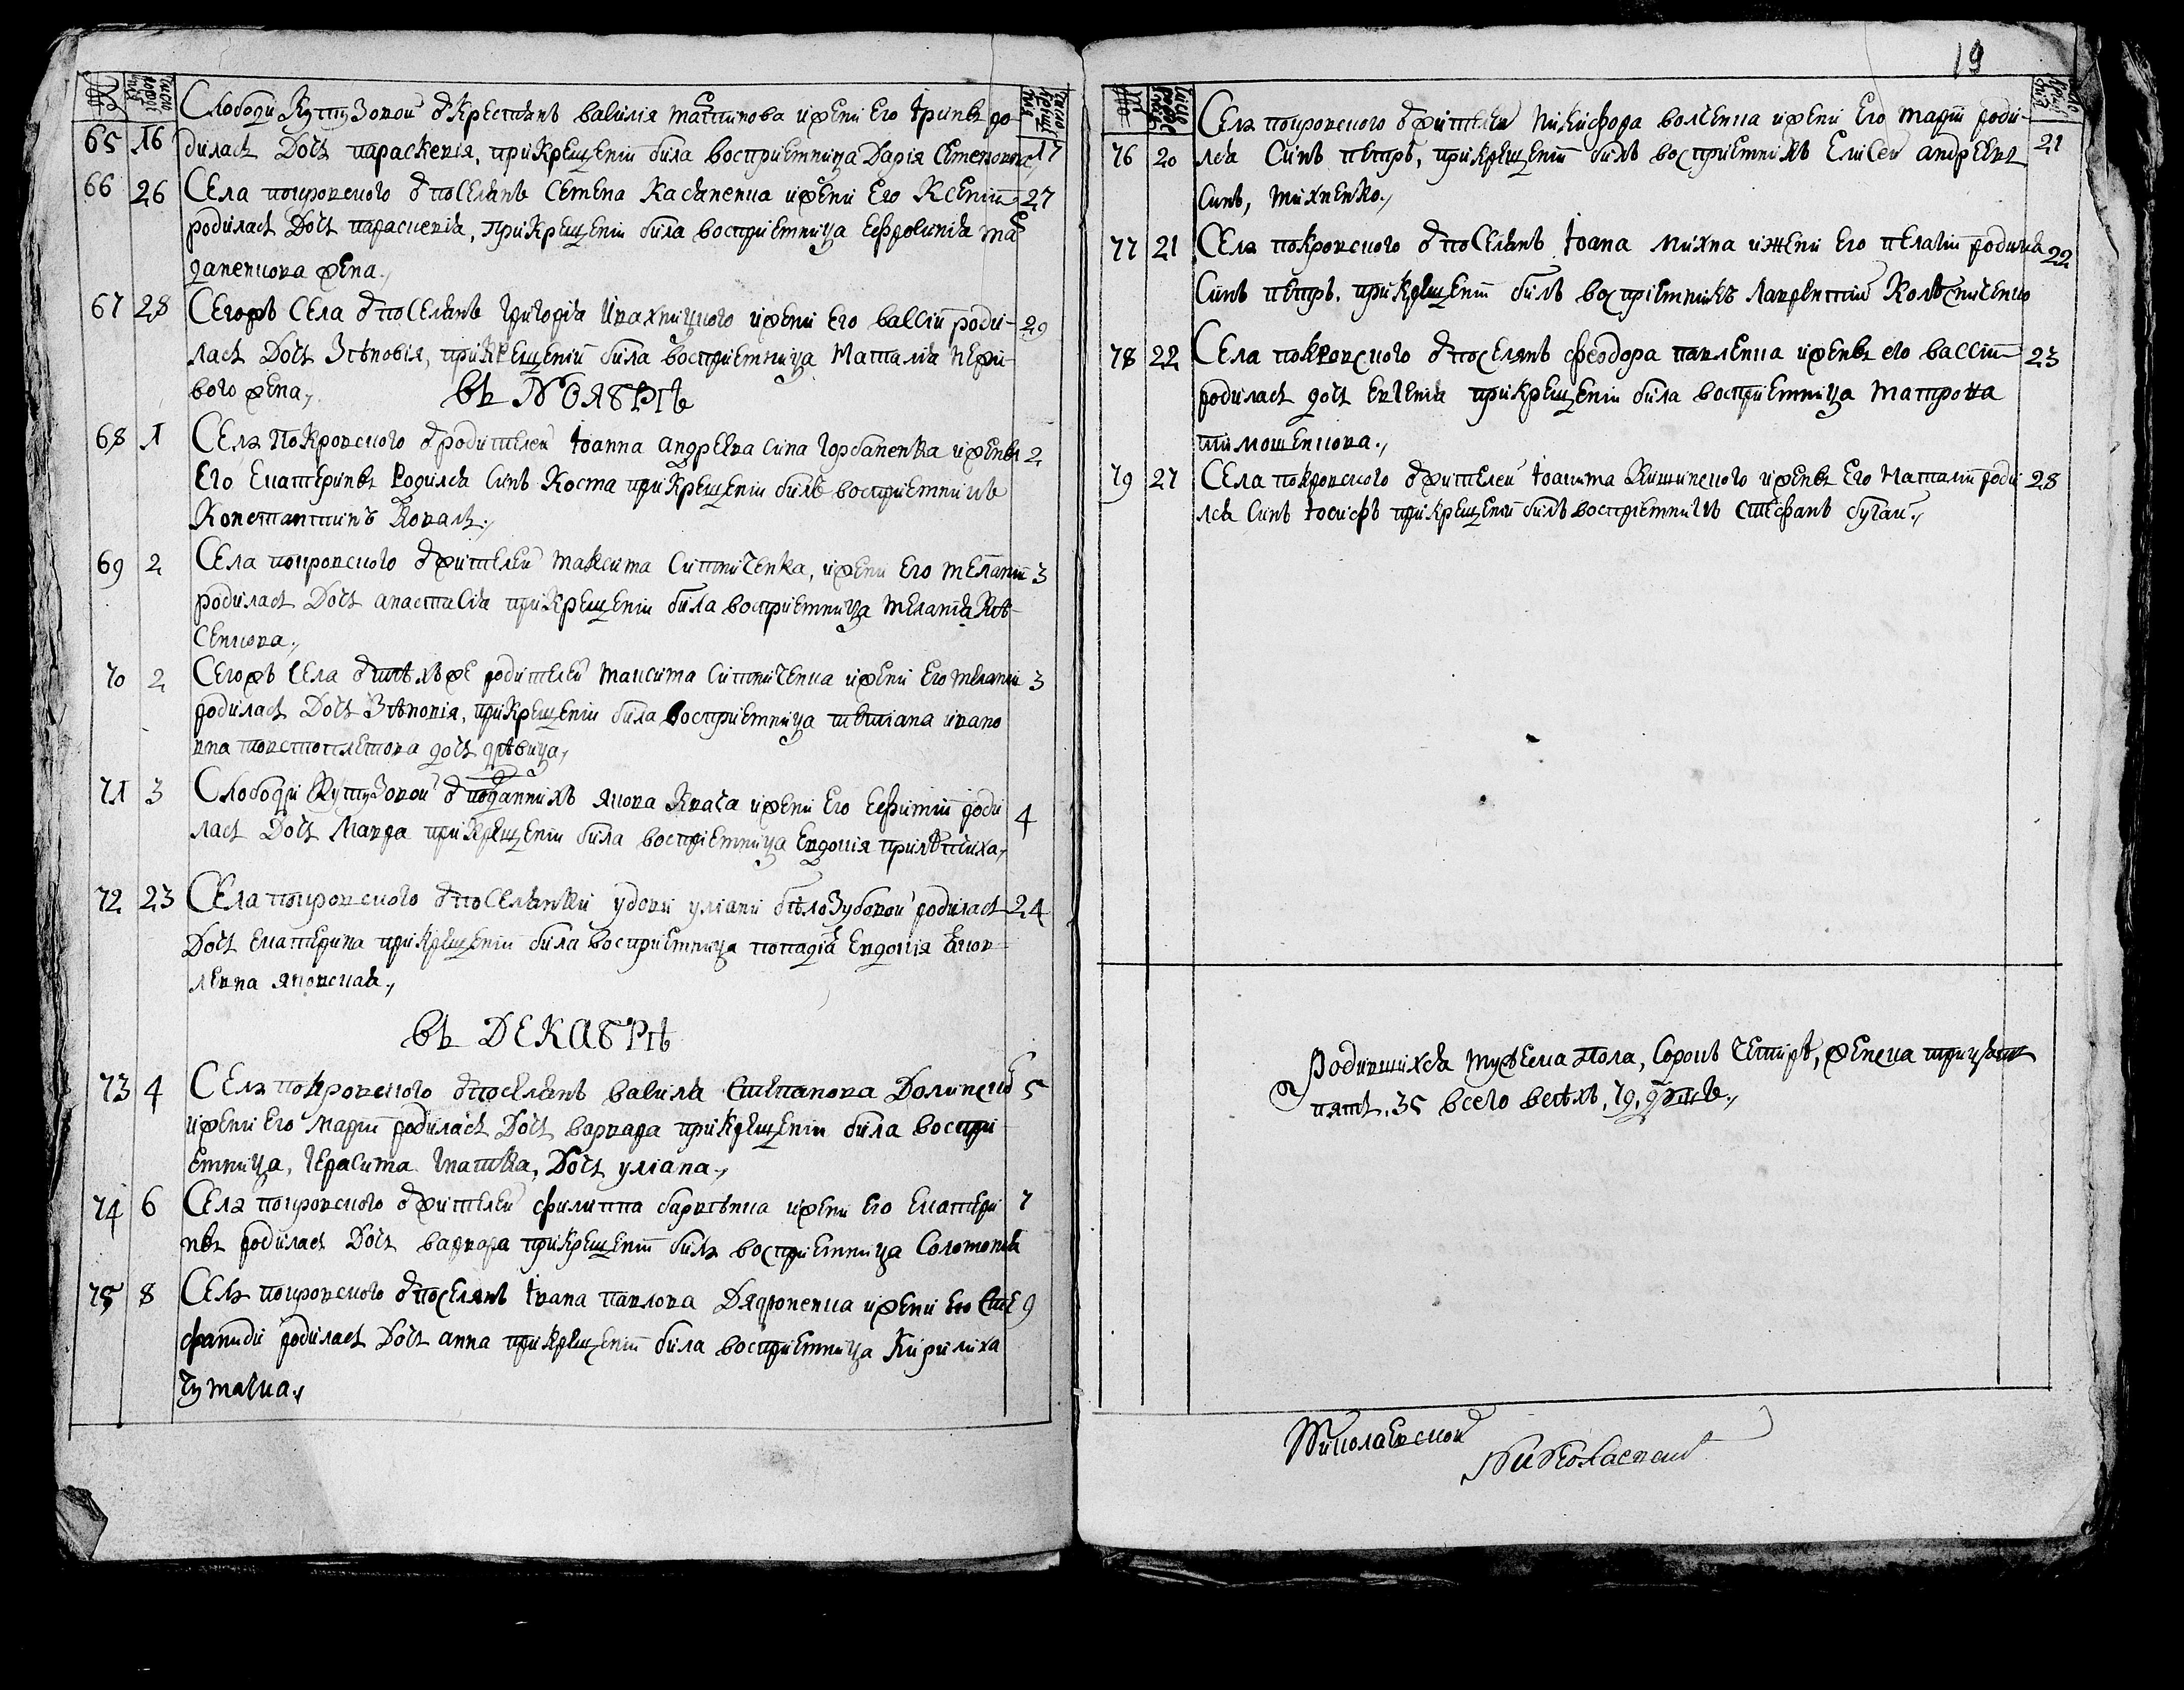 Слободи Кутузовой ѿ крестянъ вавилія мартинова ижени Его Іринѣ ро-
65 16 дилась Дочь параскевія, прикрещеніи била восприемница Дарія Семеновна, 17
66 26 Села покровского ѿ поселянъ Семена Касяненка ижени Его Ксеніи 27
родилась Дочь параскевія, прикрещеніи била восприемница Ефросинія ма
даненкова жена.,
67 28 Согожъ Села ѿ поселянъ Григорія Ивахницкого ижени Его вассіи роди- 29
лась Дочь Зѣновія, прикрещеніи била восприемница Наталія
вого жена.,
въ НОЯБРѢ
68 1 Села Покровского ѿ родителей Іоанна андреева сина Горбаненка иженѣ 2
Его Екатеринѣ Родился Синъ Косма прикрещеніи билъ восприемникъ
Константинъ Коваль.,
69 2 Села покровского ѿ жителей максима Ситниченка, ижени Его меланіи 3
родилась Дочь анастасія прикрещеніи била восприемница меланія
Сенкова.,
70 2 Согожъ села ѿ тѣхъже родителей максима Ситниченка ижени Его меланіи 3
родилась Дочь Зѣновія, прикрещеніи била восприемница татіана ивано
вна дочь дѣвица,
71 3 Слободи Кутузовой ѿ поданнихъ якова Квача ижени Его Ефиміи роди 4
лась Дочь Мавра прикрещеніи била восприемница Евдокія
72 23 Села покровского ѿ поселянки удови уліани бѣлозубовой родилась 24
Дочь Екатерина прикрещеніи била восприемница попадія Евдокія Яков
левна яновская.,
въ ДЕКАБРѢ
73 4 Села покровского ѿ поселянъ вавила Степанова Долинско 5
ижени Его маріи родилась Дочь варвара прикрещеніи била воспри
емница, Герасима Гнатка, Дочь уліана.,
74 6 Села покровского ѿ жителей филиппа ижени Его Екатери 7
нѣ родилась Дочь варвара прикрещеніи била восприемница Соломонія
75 8 Села покровского ѿ поселянъ Івана павлова Дядюненка ижени Его Сте 9
фаниди родилась Дочь анна прикрещеніи била восприемница Кирилиха
Чумачка.,
19
Села покровского ѿ жителей Никифора волченка ижени Его маріи роди-
76 20 лся Синъ петръ, прикрещеніи билъ восприемникъ Елисей андреевъ 21
Синъ, михненко.,
77 21 Села покровского ѿ поселянъ Іоана михна ижени Его пелагіи родился 22
Синъ петръ. прикрещеніи билъ восприемникъ Лаврентий Колесниченко
78 22 Села покровского ѿ поселянъ феодора павленка иженѣ его вассіи 23
родилась дочь Евгенія прикрещеніи била восприемница матрона
тимошенкова.,
79 27 Села покровского ѿ жителей Іоакима Кишинского иженѣ Его Наталіи роди 28
лся Синъ Іосифъ прикрещеніи билъ восприемникъ Стефанъ бугай.,
Родившихся мужеска пола, Сорокъ четирѣ, женска трицать
пять. 35 всего всѣхъ, 79, душъ.,
Николаевской
Николаевской